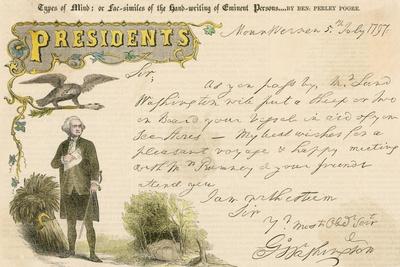 Types of Mind; or Fac-similes of the Hand-writing of Eminent Persons....BY BEN: PERLEY POORE.
PRESIDENTS
Mount Vernon 5th July 1797
Sir,
As you pass by, Mr Lund
Washington will put a Sheep or two
on Board your Vessel in aid of your
Sea Stores — My best wishes for a
pleasant voyage & happy meeting
with Mrs Rumney & your friends
attend you
I am with esteem
Sir
Yr Most Obedt Servt
Go Washington